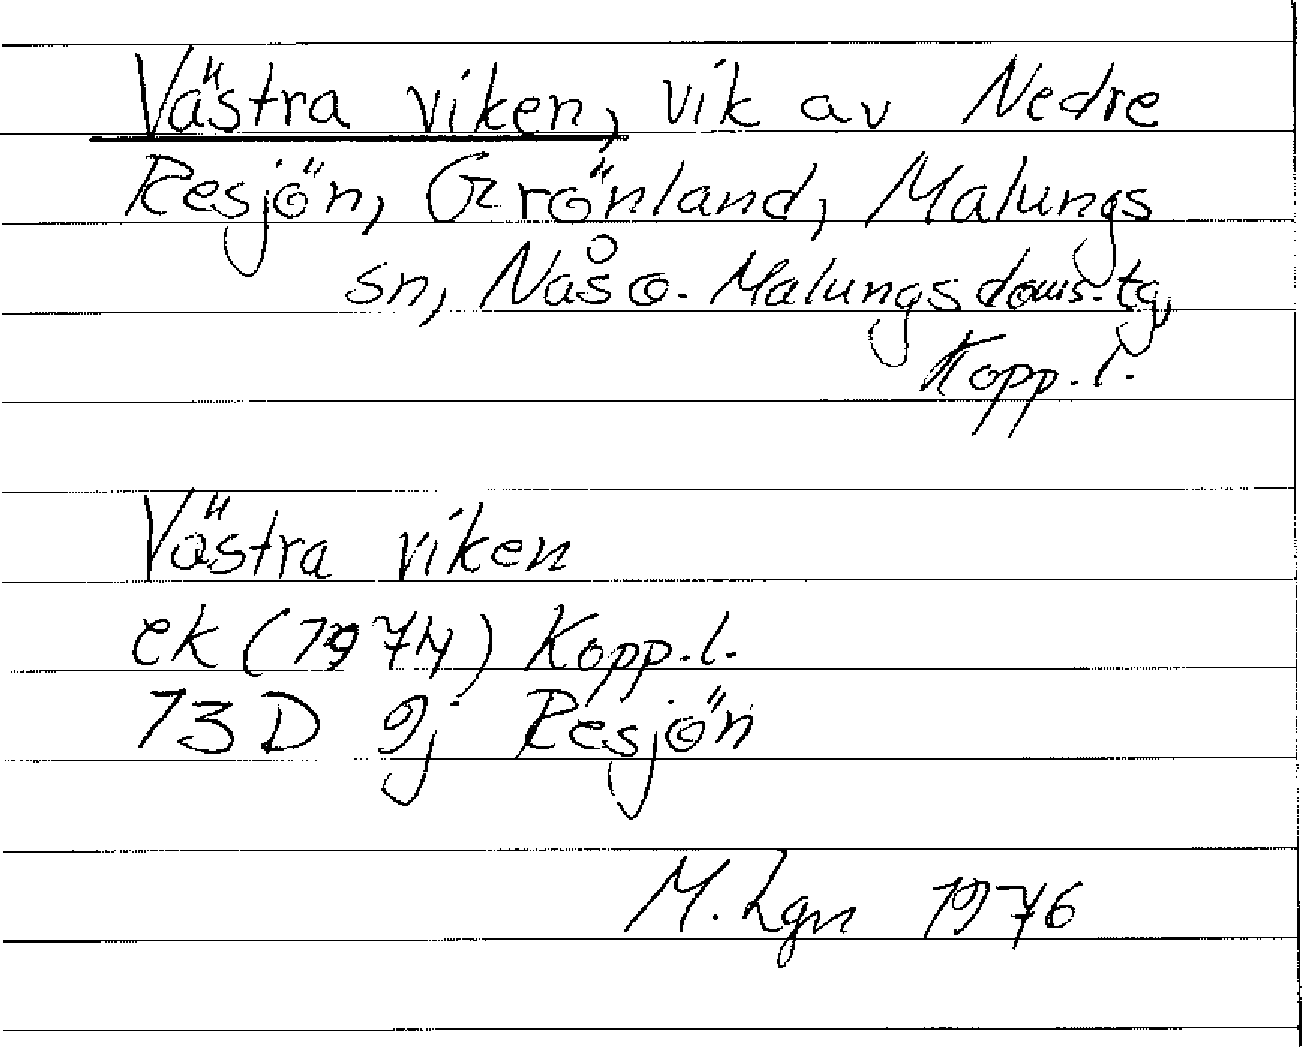 Västra viken, vik av Nedre
Resjön, Grönland, Malungs
sn, Nås o. Malungs doms. tg,
Kopp. l.
Västra viken
ek (1974) Kopp. l.
13 D 9j Resjön
M. Lgn 1976